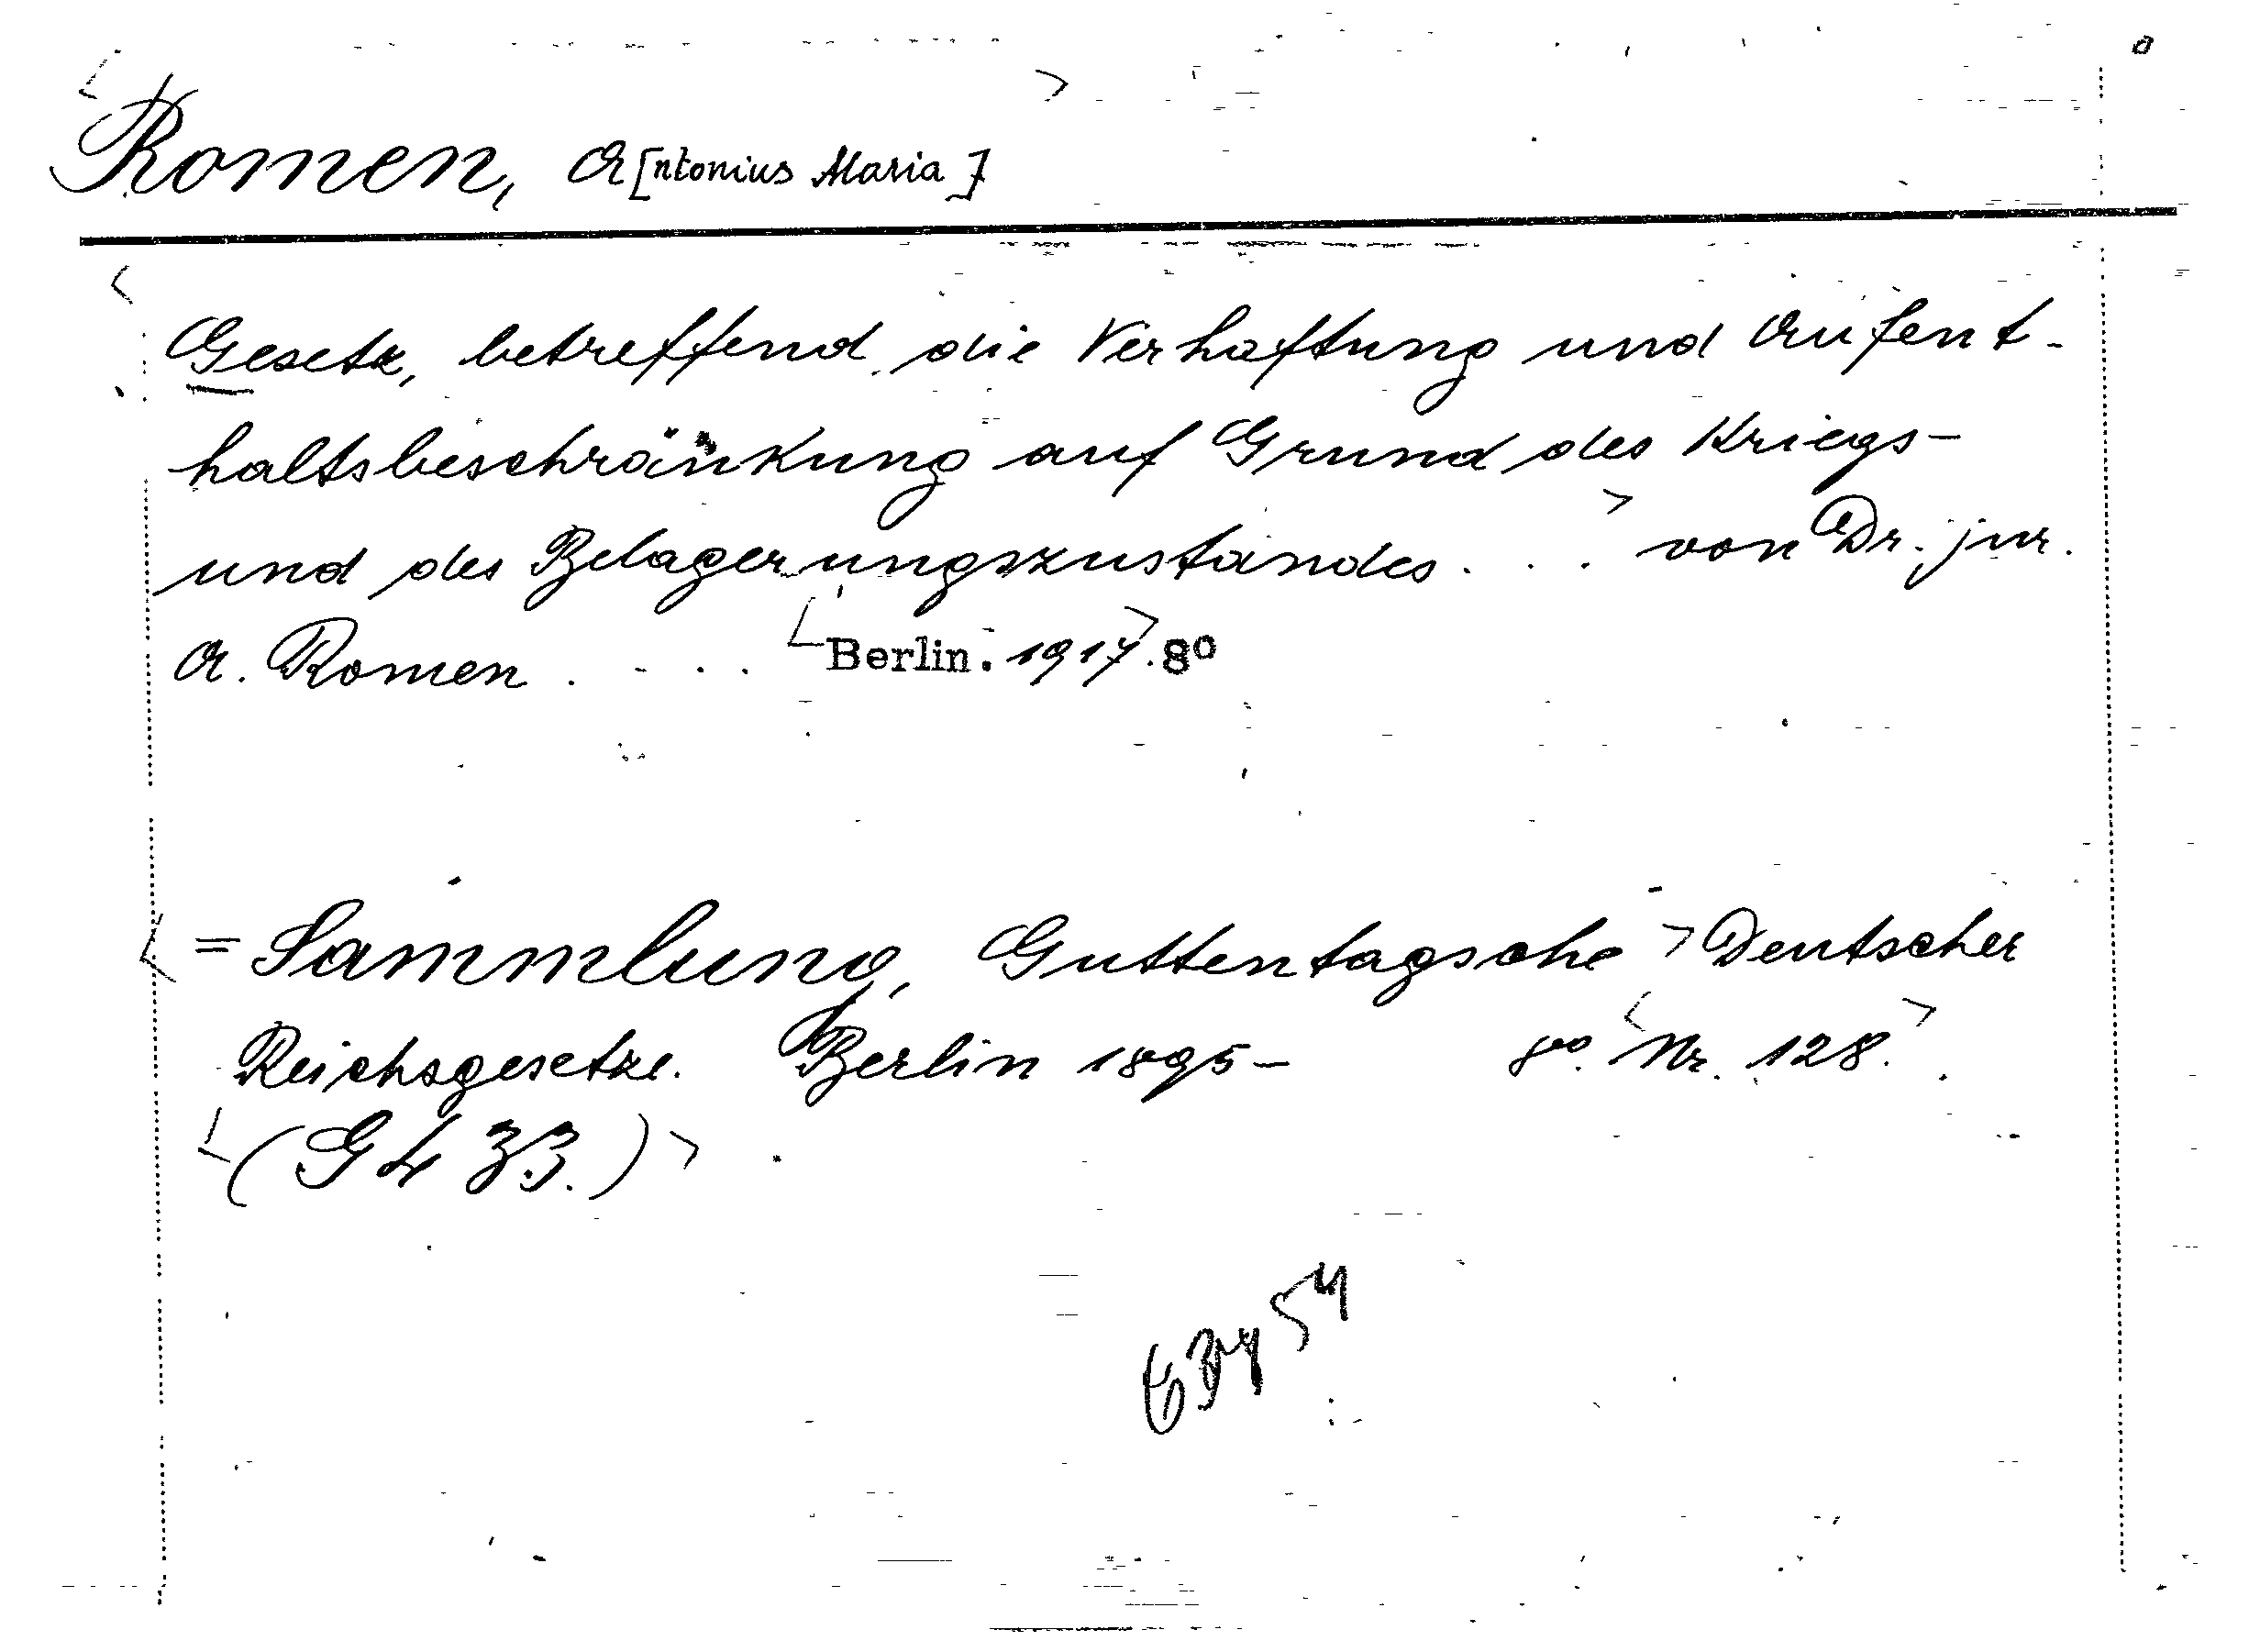 Romen, A[ntonius Maria]
Gesetz, betreffend die Verhaftung und Aufent-
haltsbeschränkung auf Grund des Kriegs-
und des Belagerungszustandes . . . von Dr. jur.
A. Romen . . . . Berlin. 1917. 8º
= Sammlung, Guttentagsche Deutscher
Reichsgesetze. Berlin 1895- 8º. Nr. 128.